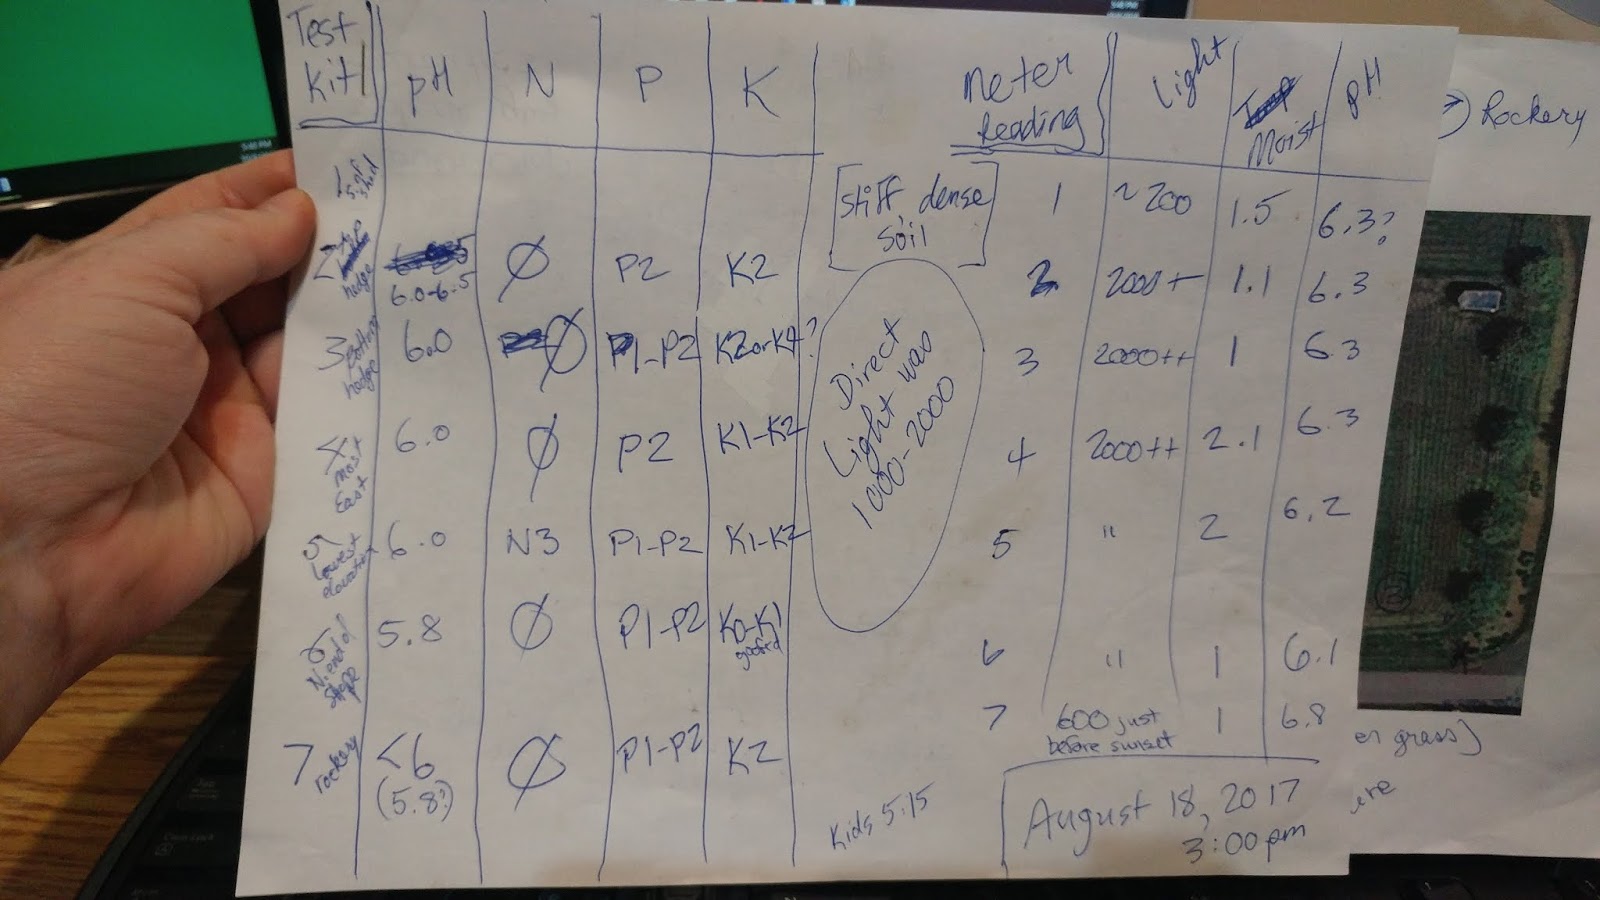 Test Kit | pH | N | P | K
1 Soft
2 top hedge | 6.0-6.5 | Ø | P2 | K2
3 Bottom hedge | 6.0 | Ø | P1-P2 | K2orK4?
4 most East | 6.0 | Ø | P2 | K1-K2
5 Lowest elevation | 6.0 | N3 | P1-P2 | K1-K2
6 N. end of slope | 5.8 | Ø | P1-P2 | K0-K1
7 rockery | <6 (5.8?) | Ø | P1-P2 | K2
[Stiff, dense
soil]
Direct
Light was
1000-2000
Kids 5.15
Meter Reading | Light | Temp Moist | pH
1 | ~200 | 1.5 | 6.3?
2 | 2000+ | 1.1 | 6.3
3 | 2000++ | 1 | 6.3
4 | 2000++ | 2.1 | 6.3
5 | " | 2 | 6.2
6 | " | 1 | 6.1
7 | 600 just before sunset | 1 | 6.8
August 18, 2017
3:00pm
Rockery
grass)
5:48 PM